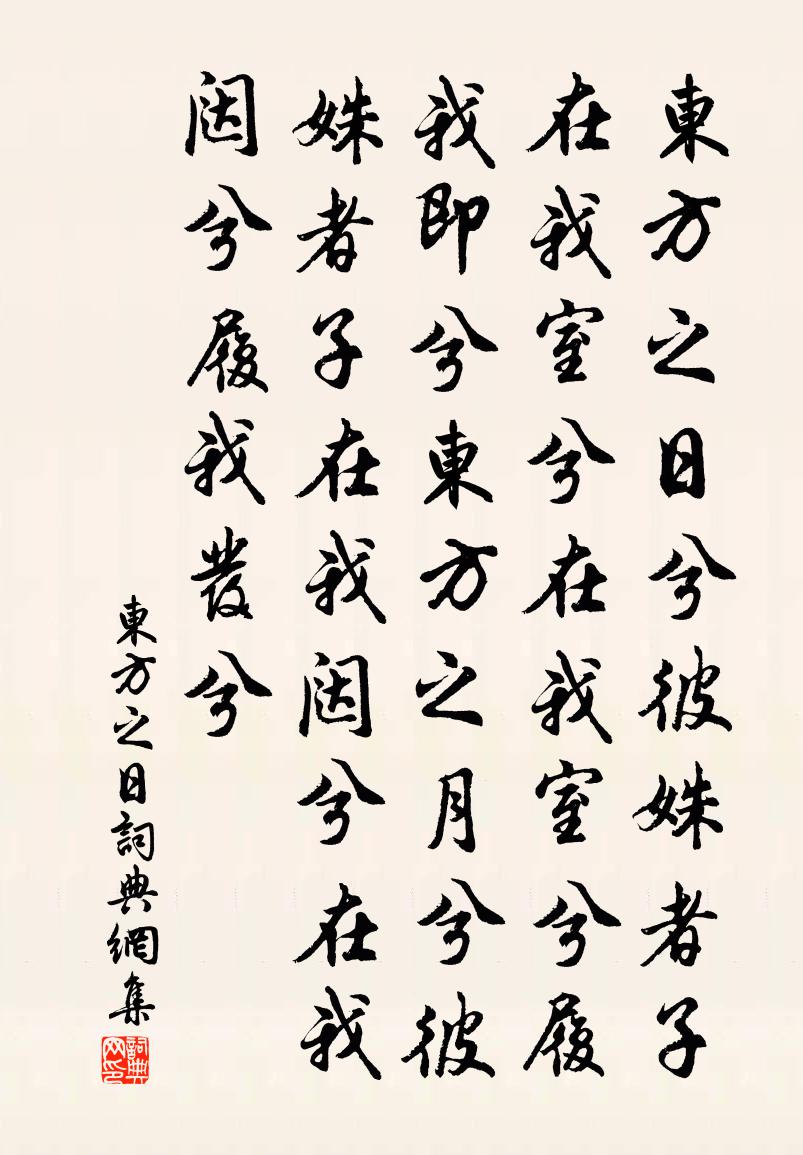 東方之日兮彼姝者子
在我室兮在我室兮履
我即兮東方之月兮彼
姝者子在我闼兮在我
闼兮履我發兮
東方之日詞典網集
詞典网印